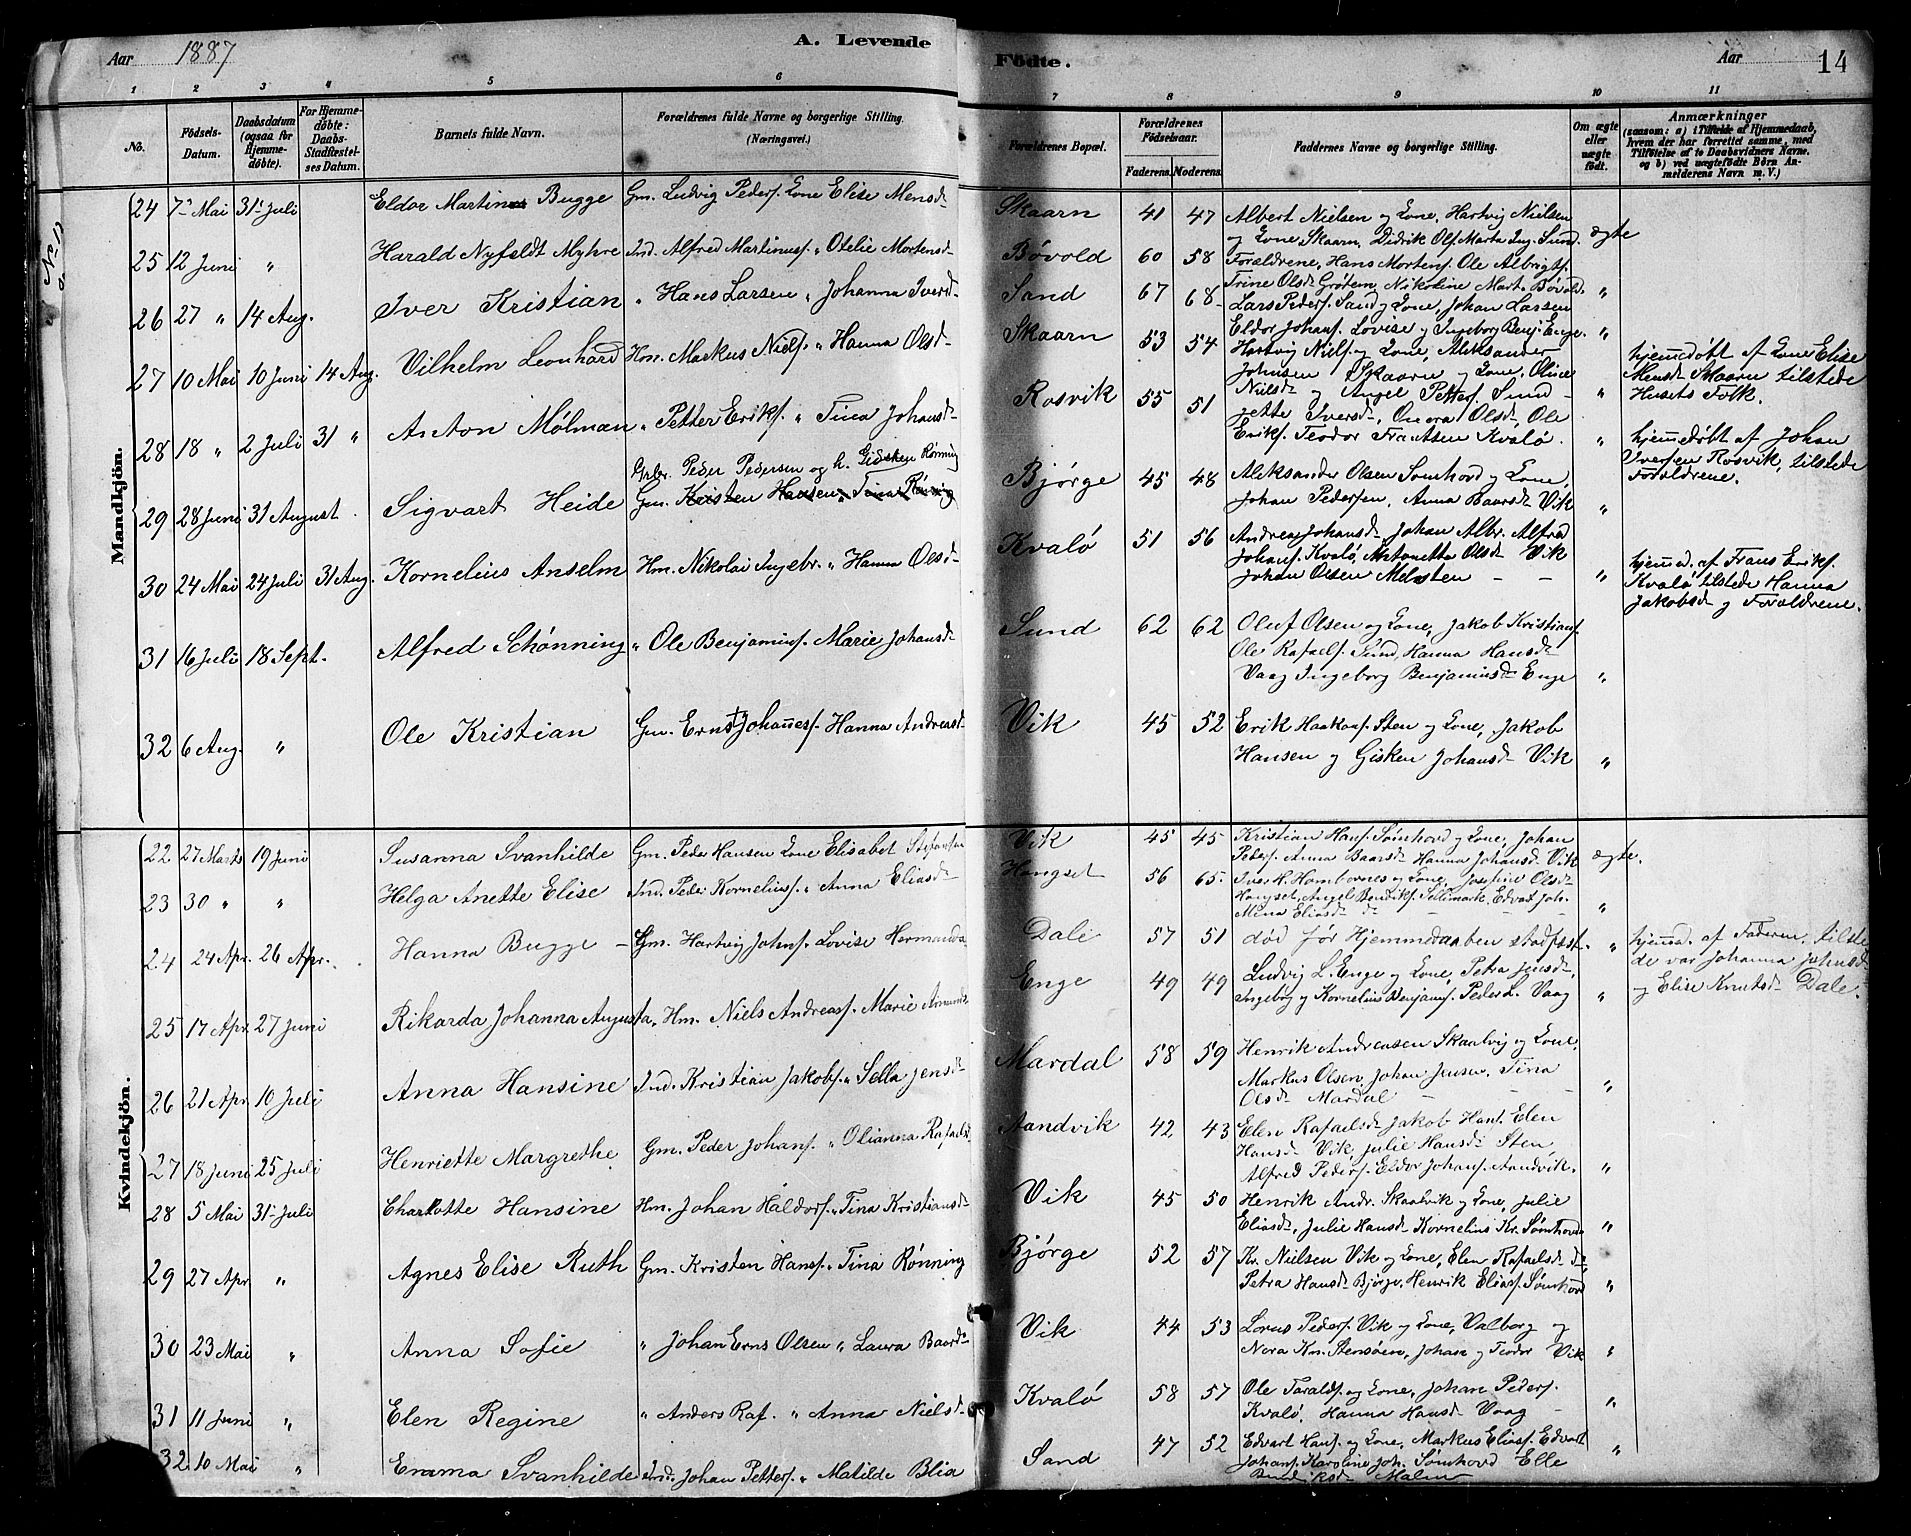 Aar 1887
A. Levende
Födte.
Aar
14
1 2 3 4 5 6 7 8 9 10 11
No.
Födsels-Datum.
Daabsdatum (ogsaa for Hjemme-døbte).
For Hjemme-døbte: Daabs-Stadfæstel-ses Datum.
Barnets fulde Navn.
Forældrenes fulde Navne og borgerlige Stilling. (Næringsvei.)
Forældrenes Bopæl.
Forældrenes Fødselsaar.
Faderens. Moderens.
Faddernes Navne og borgerlige Stilling.
Om ægte eller uægte født.
Anmærkninger
(saasom: a) i Tilfælde af Hjemmedaab, hvem der har forrettet samme, med Tilføielse af to Daabsvidners Navne, og b) ved uægtefödte Börn Anmelderens Navn m. V.)
Mandkjön.
24 7 Mai 31 Juli Eldor Martin Bugge Gm. Ludvig Peders. Kone Elise Mensd. Skaarn 41 47 Albert Nielsen og Kone, Hartvig Nielsen og Kone Skaarn, Didrik Ols. Marta Ing. Sund. ægte
25 12 Juni " Harald Nyfeldt Myhre Ind. Alfred Martinus. " Otelie Mortensd. Bövold 60 58 Forældrene, Hans Mortens. Ole Albrigts. Trine Olsd. Grötem, Nikoline Mart. Bövold "
26 27 " 14 Aug. Iver Kristian " Hans Larsen " Johanna Iversd. Sand 67 68 Lars Peders. Sand og Kone, Johan Larsen Eldor Johans. Lovise og Ingeborg Benj. Enge. "
27 10 Mai 10 Juni 14 Aug. Vilhelm Leonhard Hm. Markus Niels. " Hanna Olsd. Skaarn 53 54 Hartvig Niels. og Kone, Aleksander Johnsen Skaarn og Kone, Oline Nielsd. og Angel Petters. Sund " hjemmedøbt af Kone Elise Mensd. Skaarn tilstede Husets Folk.
28 18 " 2 Juli 31 " Anton Mølman " Petter Eriks. " Tina Johansd. Rosvik 55 51 Jette Iversd. Onora Olsd. Ole Eriks. Teodor Frantsen Kvalø. " hjemmedøbt af Johan Iversen Rosvik, tilstede Forældrene.
29 28 Juni 31 August Sigvart Heide Gbr. Peder Pedersen og h. Gidsken Rönning Gm. Kristen Hansen " Tina Rönnig Bjørge 45 48 Aleksander Olsen Sømhovd og Kone, Johan Pedersen, Anna Baarsd. Vik "
30 24 Mai 24 Juli 31 Aug. Kornelius Anselm Hm. Nikolai Ingebr. " Hanna Olsd. Kvalø 51 56 Andrea Johansd. Johan Albr. Alfred Johans. Kvalø, Antonette Olsd. Vik Johan Olsen Melsten " hjemmed. af Frans Eriks. Kvalø tilstede Hanna Jakobsd. og Forældrene.
31 16 Juli 18 Sept. Alfred Schønning " Ole Benjamins. Marie Johansd. Sund 62 62 Oluf Olsen og Kone, Jakob Kristians. Ole Rafaels. Sund, Hanna Hansd. Vaag Ingeborg Benjaminsd. Enge "
32 6 Aug. " Ole Kristian Gm. Ernst Johannes. Hanna Andreasd. Vik 45 52 Erik Haakons. Sten og Kone, Jakob Hansen og Gisken Johansd. Vik "
Kvindekjön.
22 27 Marts 19 Juni Susanna Svanhilde Gm. Peder Hansen Kone Elisabet Stefansen Vik 45 45 Kristian Hans. Sømhovd og Kone, Johan Peders. Anna Baarsd. Hanna Johansd. Vik ægte.
23 30 " " Helga Anette Elise Ind. Peder Kornelius. " Anna Eliasd. Hongset 56 65 Iver K. Hombornes og Kone, Josefine Olsd. Hongset, Angel Bendiks. Sellimark, Edvart Joh. Mina Eliasd. "
24 24 Apr. 26 Apr. Hanna Bugge Gm. Hartvig Johns. Lovise Hermansd. Dale 57 51 død før Hjemmedaaben stadfæst. " hjemmed. af Faderen, tilstede var Johanna Johnsd. og Elise Knutsd. Dale.
25 17 Apr. 27 Juni Rikarda Johanna Augusta, Hm. Niels Andreas. Marie Amunds. Enge 49 49 Ludvig L. Enge og Kone, Petra Jensd. Ingebøg og Kornelius Benjams. Peder L. Vaag "
26 21 Apr. 10 Juli Anna Hansine Ind. Kristian Jakobs. " Sella Jensd. Mardal 58 59 Henrik Andreasen Skaalvig og Kone, Markus Olsen, Johan Jensen, Tina Olsd. Mardal "
27 18 Juni 25 Juli Henriette Margrethe Gm. Peder Johans. " Olianna Rafaelsd. Aandvik 42 43 Elen Rafaelsd. Jakob Hans. Elen Hansd. Vik, Julie Hansd. Sten, Alfred Peders. Eldor Johans. Aandvik. "
28 5 Mai 31 Juli Charlotte Hansine Hm. Johan Haldors. " Tina Kristiansd. Vik 45 50 Henrik Andr. Skaalvik og Kone, Julie Eliasd. Julie Hansd. Kornelius Kr. Sømhovd "
29 27 Apr. " Agnes Elise Ruth Gm. Kristen Hans. " Tina Rønning Bjørge 52 57 Kr. Nielsen Vik og Kone, Elen Rafaelsd. Petra Hansd. Bjørge, Henrik Elias. Sømhovd "
30 23 Mai " Anna Sofie " Johan Erns Olsen " Laura Baards. Vik 44 53 Lorns Peders. Vik og Kone, Valborg og Nora Kn. Stensöen, Johan og Teodor Vik "
31 11 Juni " Elen Regine " Anders Raf. " Anna Nielsd. Kvalø 58 57 Ole Taralds. og Kone, Johan Peders. Kvalø, Hanna Hansd. Vaag "
32 10 Mai " Emma Svanhilde Ind. Johan Petters. " Matilde Blia Sand 47 52 Edvart Hans. og Kone, Markus Elias. Edvart Johans. Karoline Joh. Sømhovd Elle Bendiksd. Malm "